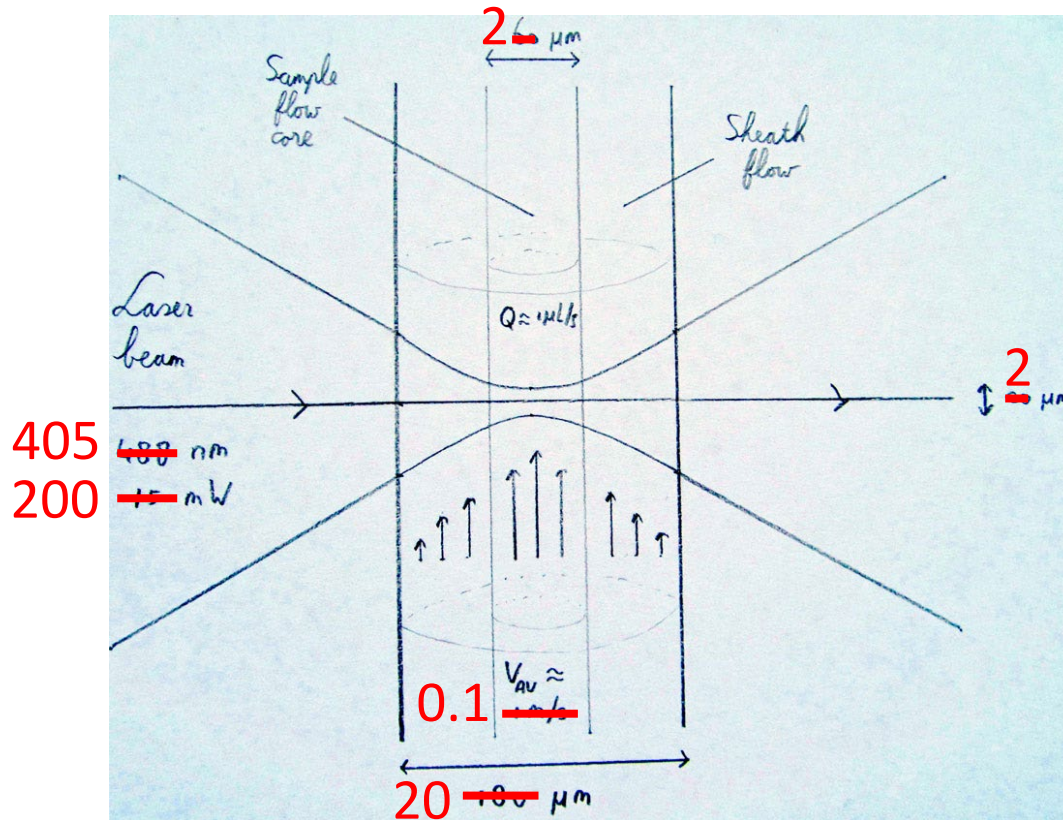 2 μm
Sample
flow
core
Sheath
flow
Laser
beam
Q≈1μL/s
2 μm
405 488 nm
200 15 mW
V_AV ≈
0.1 1 m/s
20 μm